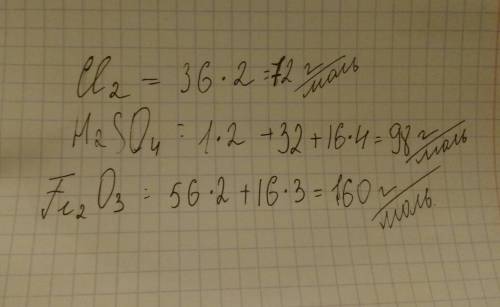 Cl₂ = 36·2=72 г/моль
H₂SO₄ = 1·2 +32+16·4=98 г/моль
Fe₂O₃ = 56·2+16·3=160 г/моль